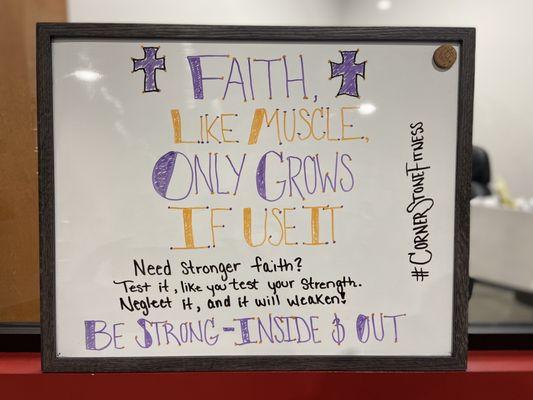 FAITH,
LIKE MUSCLE,
ONLY GROWS
IF USE IT
Need Stronger faith?
Test it, like you test your strength.
Neglect it, and it will weaken!
BE STRONG-INSIDE & OUT
#CORNERSTONEFITNESS